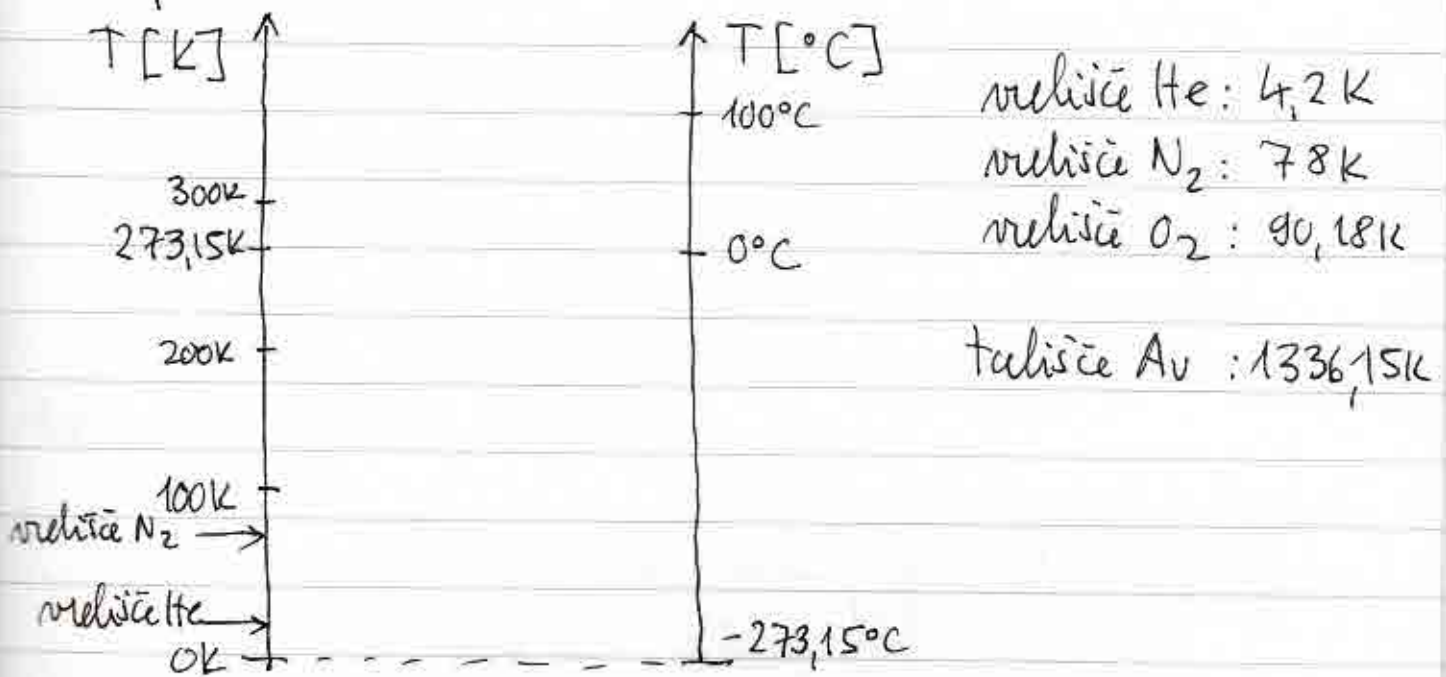 T [K]
300K
273,15K
200K
100K
vrelišče N₂
vrelišče He
0K
T [°C]
100°C
0°C
-273,15°C
vrelišče He: 4,2 K
vrelišče N₂: 78K
vrelišče O₂: 90,18K
tališče Au: 1336,15K